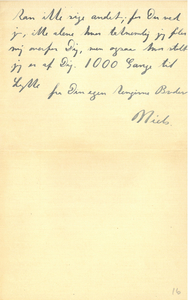 kan ikke sige andet, for Du ved
jo, ikke alene hvor taknemlig jeg føler
mig overfor Dig, men ogsaa hvor stolt
jeg er af Dig. 1000 Gange til
Lykke
fra Din egen Broder
Niels.
16